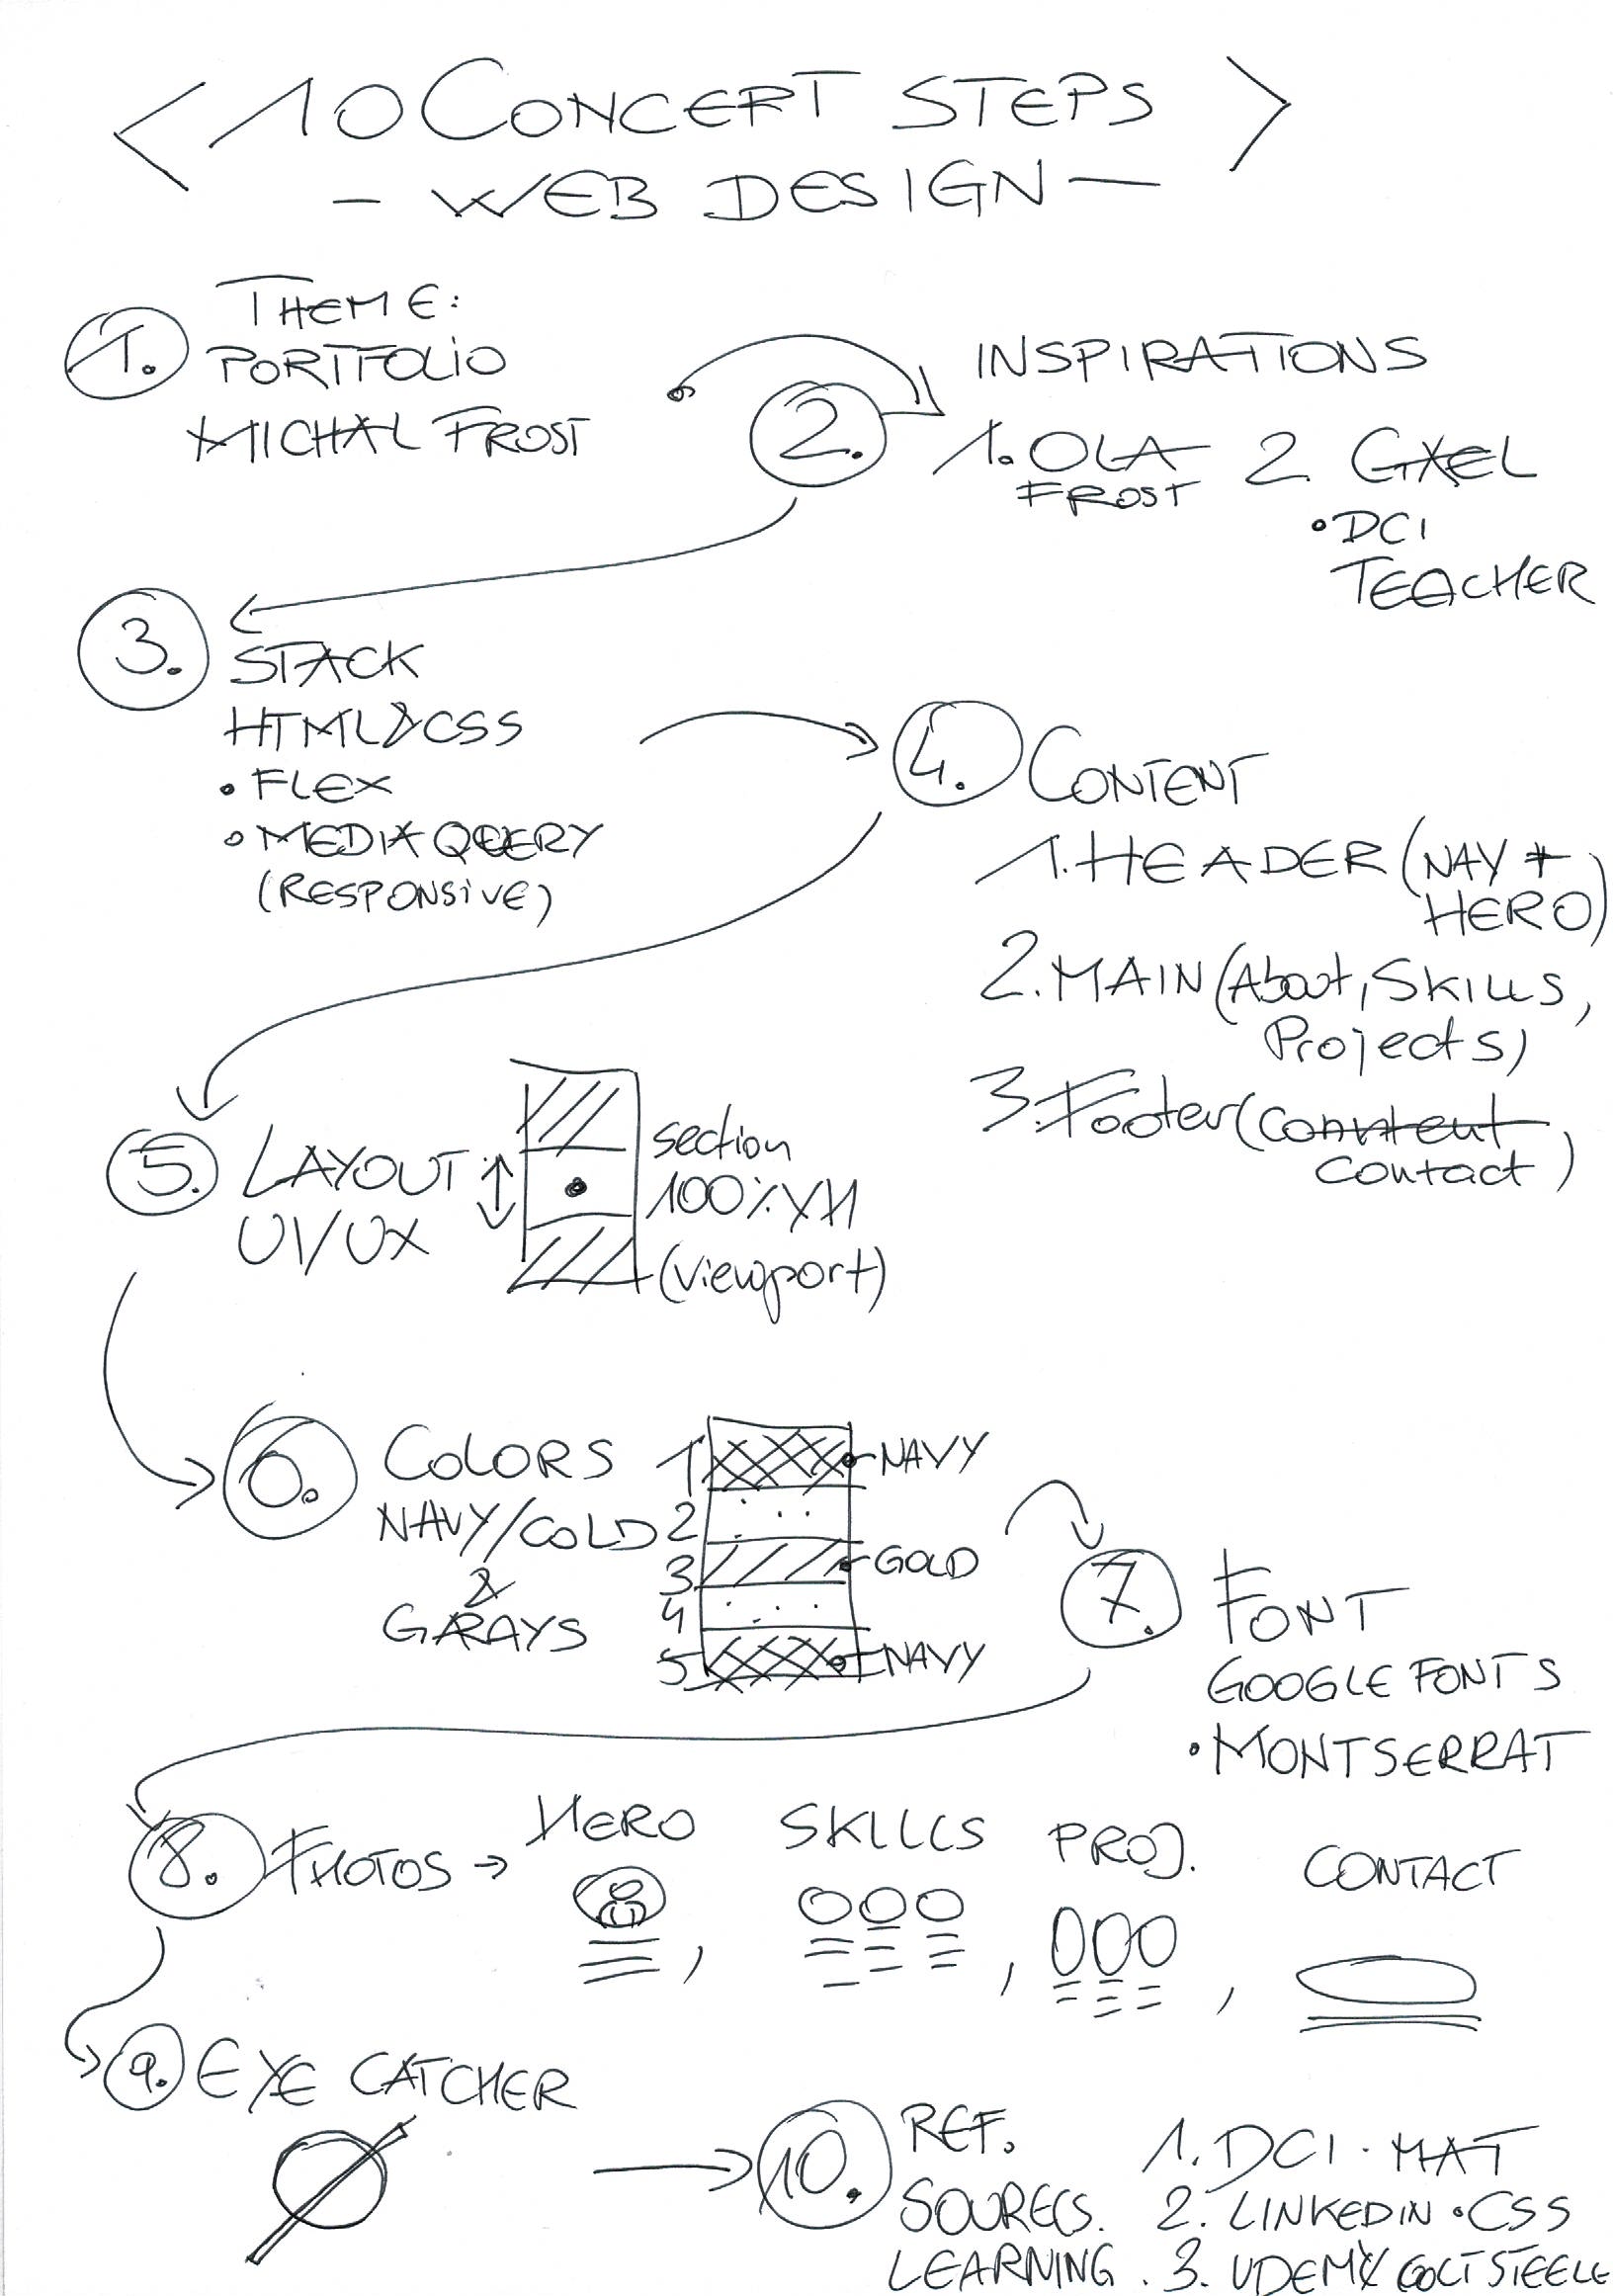 < 10 CONCEPT STEPS >
- WEB DESIGN -
1. THEME:
PORTFOLIO
MICHAL FROST
2. INSPIRATIONS
1. OLA FROST
2. AXEL
• DCI
TEACHER
3. STACK
HTML & CSS
• FLEX
• MEDIA QUERY
(RESPONSIVE)
4. CONTENT
1. HEADER (NAV +
HERO)
2. MAIN (About, SKILLS,
Projects)
3. Footer (
contact)
5. LAYOUT
UI/UX
section
100% VH
(viewport)
6. COLORS
NAVY/GOLD
&
GRAYS
1 NAVY
2
3 GOLD
4
5 NAVY
7. FONT
GOOGLE FONTS
• MONTSERRAT
8. PHOTOS → HERO, SKILLS, PROJ., CONTACT
9. EYE CATCHER
10. REF.
SOURECS.
LEARNING.
1. DCI · MAT
2. LINKEDIN • CSS
3. UDEMY COLT STEELE